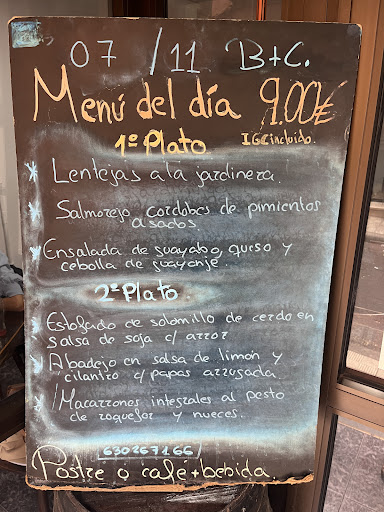 07/11 B+C.
Menú del día 9.00€
1º Plato IGIC incluido.
* Lentejas a la jardinera.
* Salmorejo cordobes de pimientos
asados.
* Ensalada de guayabo, queso y
cebolla de guayonje.
2º Plato
* Estofado de solomillo de cerdo en
salsa de soja c/ arroz
* Abadejo en salsa de limón y
cilantro c/ papas arrugada.
* Macarrones integrales al pesto
de roquefor y nueces.
630267166
Postre o café + bebida.